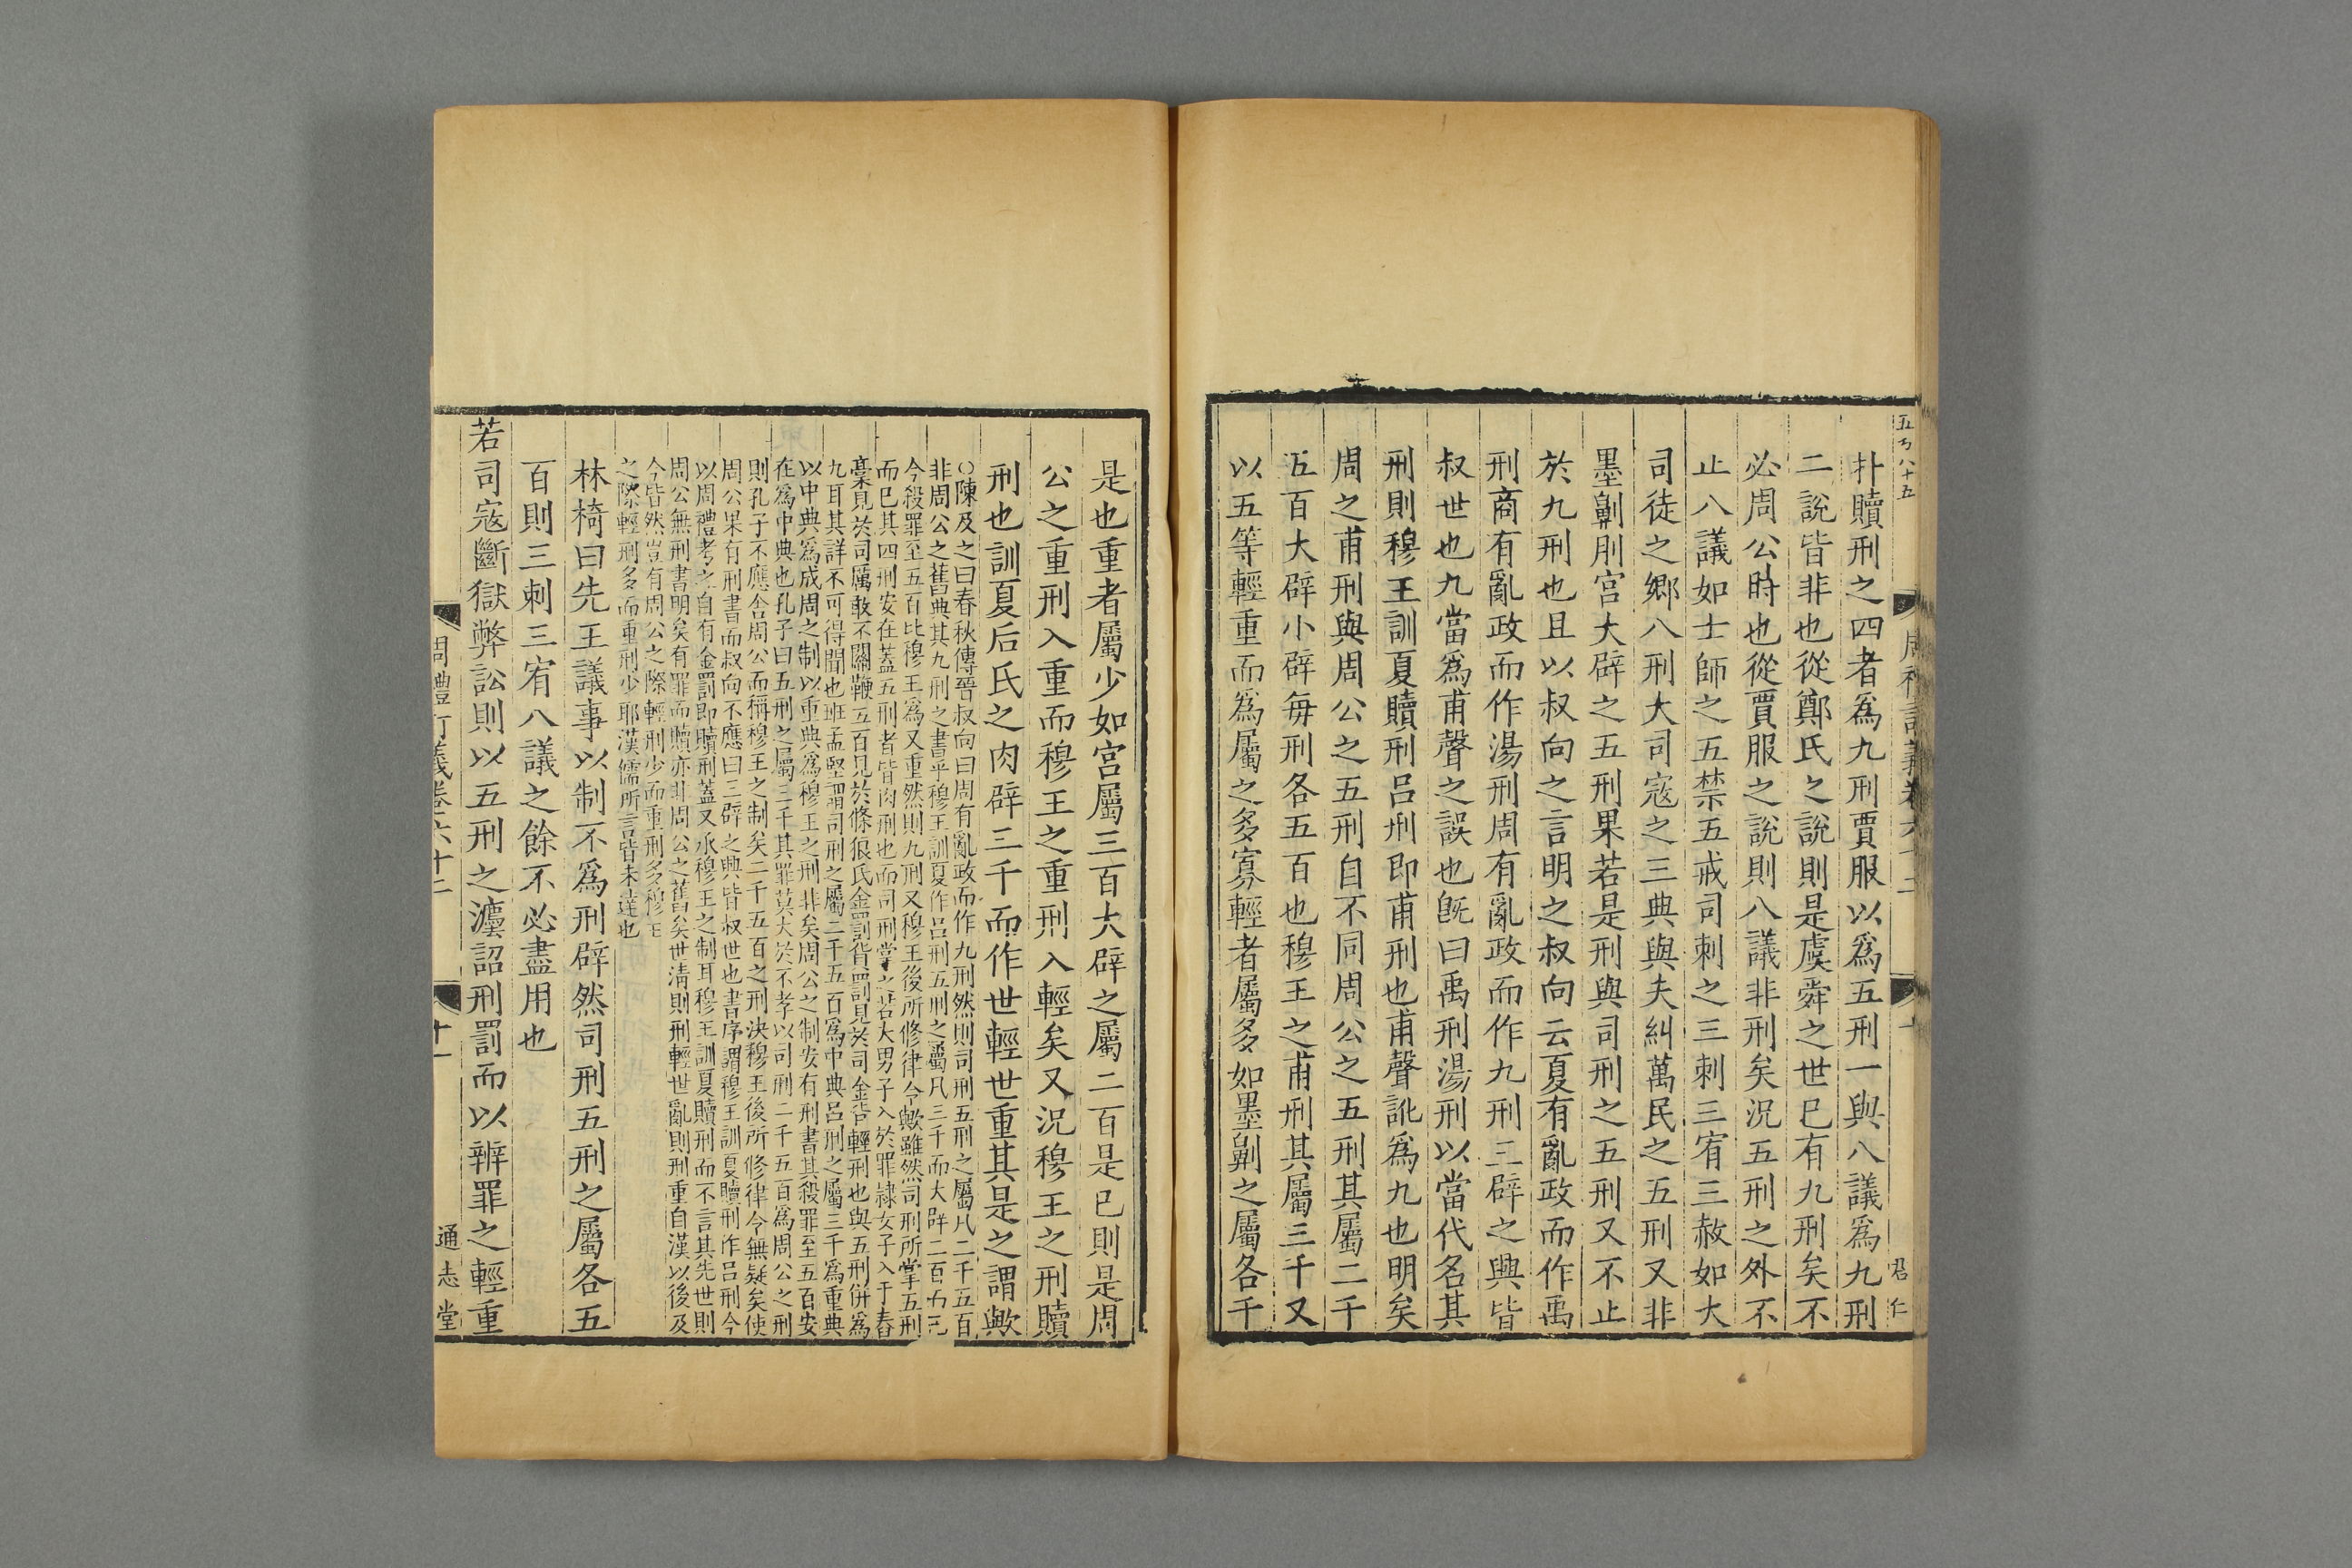 扑贖刑之四者爲九刑賈服以爲五刑一與八議爲九刑
二說皆非也從鄭氏之說則是虞舜之世已有九刑矣不
必周公時也從賈服之說則八議非刑矣況五刑之外不
止八議如士師之五禁五戒司刺之三刺三宥三赦如大
司徒之鄉八刑大司寇之三典與夫糾萬民之五刑又非
墨劓刖宮大辟之五刑果若是刑與司刑之五刑又不止
於九刑也且以叔向之言明之叔向云夏有亂政而作禹
刑商有亂政而作湯刑周有亂政而作九刑三辟之興皆
叔世也九當爲甫聲之誤也旣曰禹刑湯刑以當代名其
刑則穆王訓夏贖刑呂刑即甫刑也甫聲訛爲九也明矣
周之甫刑與周公之五刑自不同周公之五刑其屬二千
五百大辟小辟每刑各五百也穆王之甫刑其屬三千又
以五等輕重而爲屬之多寡輕者屬多如墨劓之屬各千
君仁
是也重者屬少如宮屬三百大辟之屬二百是已則是周
公之重刑入重而穆王之重刑入輕矣又況穆王之刑贖
刑也訓夏后氏之肉辟三千而作世輕世重其是之謂歟
○陳及之曰春秋傳晉叔向曰周有亂政而作九刑然則司刑五刑之屬凡二千五百
非周公之舊典其九刑之書乎穆王訓夏作呂刑五刑之屬凡三千而大辟二百
今殺罪至五百比穆王爲又重然則九刑又穆王後所修律令歟雖然司刑所掌五刑
而已其四刑安在蓋五刑者皆肉刑也而司刑掌之若大男子入於罪隷女子入于舂
槀見於司厲敢不關鞭五百見於條狼氏金罰貨罰見於司金皆輕刑也與五刑併爲
九耳其詳不可得聞也班孟堅謂司刑之屬二千五百爲中典呂刑之屬三千爲重典
以中典爲成周之制以重典爲穆王之刑非矣周公之制安有刑書其殺罪至五百安
在爲中典也孔子曰五刑之屬三千其罪莫大於不孝以司刑二千五百爲周公之刑
則孔子不應舍周公而稱穆王之制矣二千五百之刑決穆王後所修律令無疑矣使
周公果有刑書而叔向不應曰三辟之興皆叔世也書序謂穆王訓夏贖刑作呂刑今
以周禮考之自有金罰即贖刑蓋又承穆王之制耳穆王訓夏贖刑而不言其先世則
周公無刑書明矣有罪而贖亦非周公之舊矣世淸則刑輕世亂則刑重自漢以後及
今皆然豈有周公之際輕刑少而重刑多穆王
之際輕刑多而重刑少耶漢儒所言皆未達也
林椅曰先王議事以制不爲刑辟然司刑五刑之屬各五
百則三刺三宥八議之餘不必盡用也
若司寇斷獄弊訟則以五刑之灋詔刑罰而以辨罪之輕重
周禮訂義卷六十二
十一
通志堂